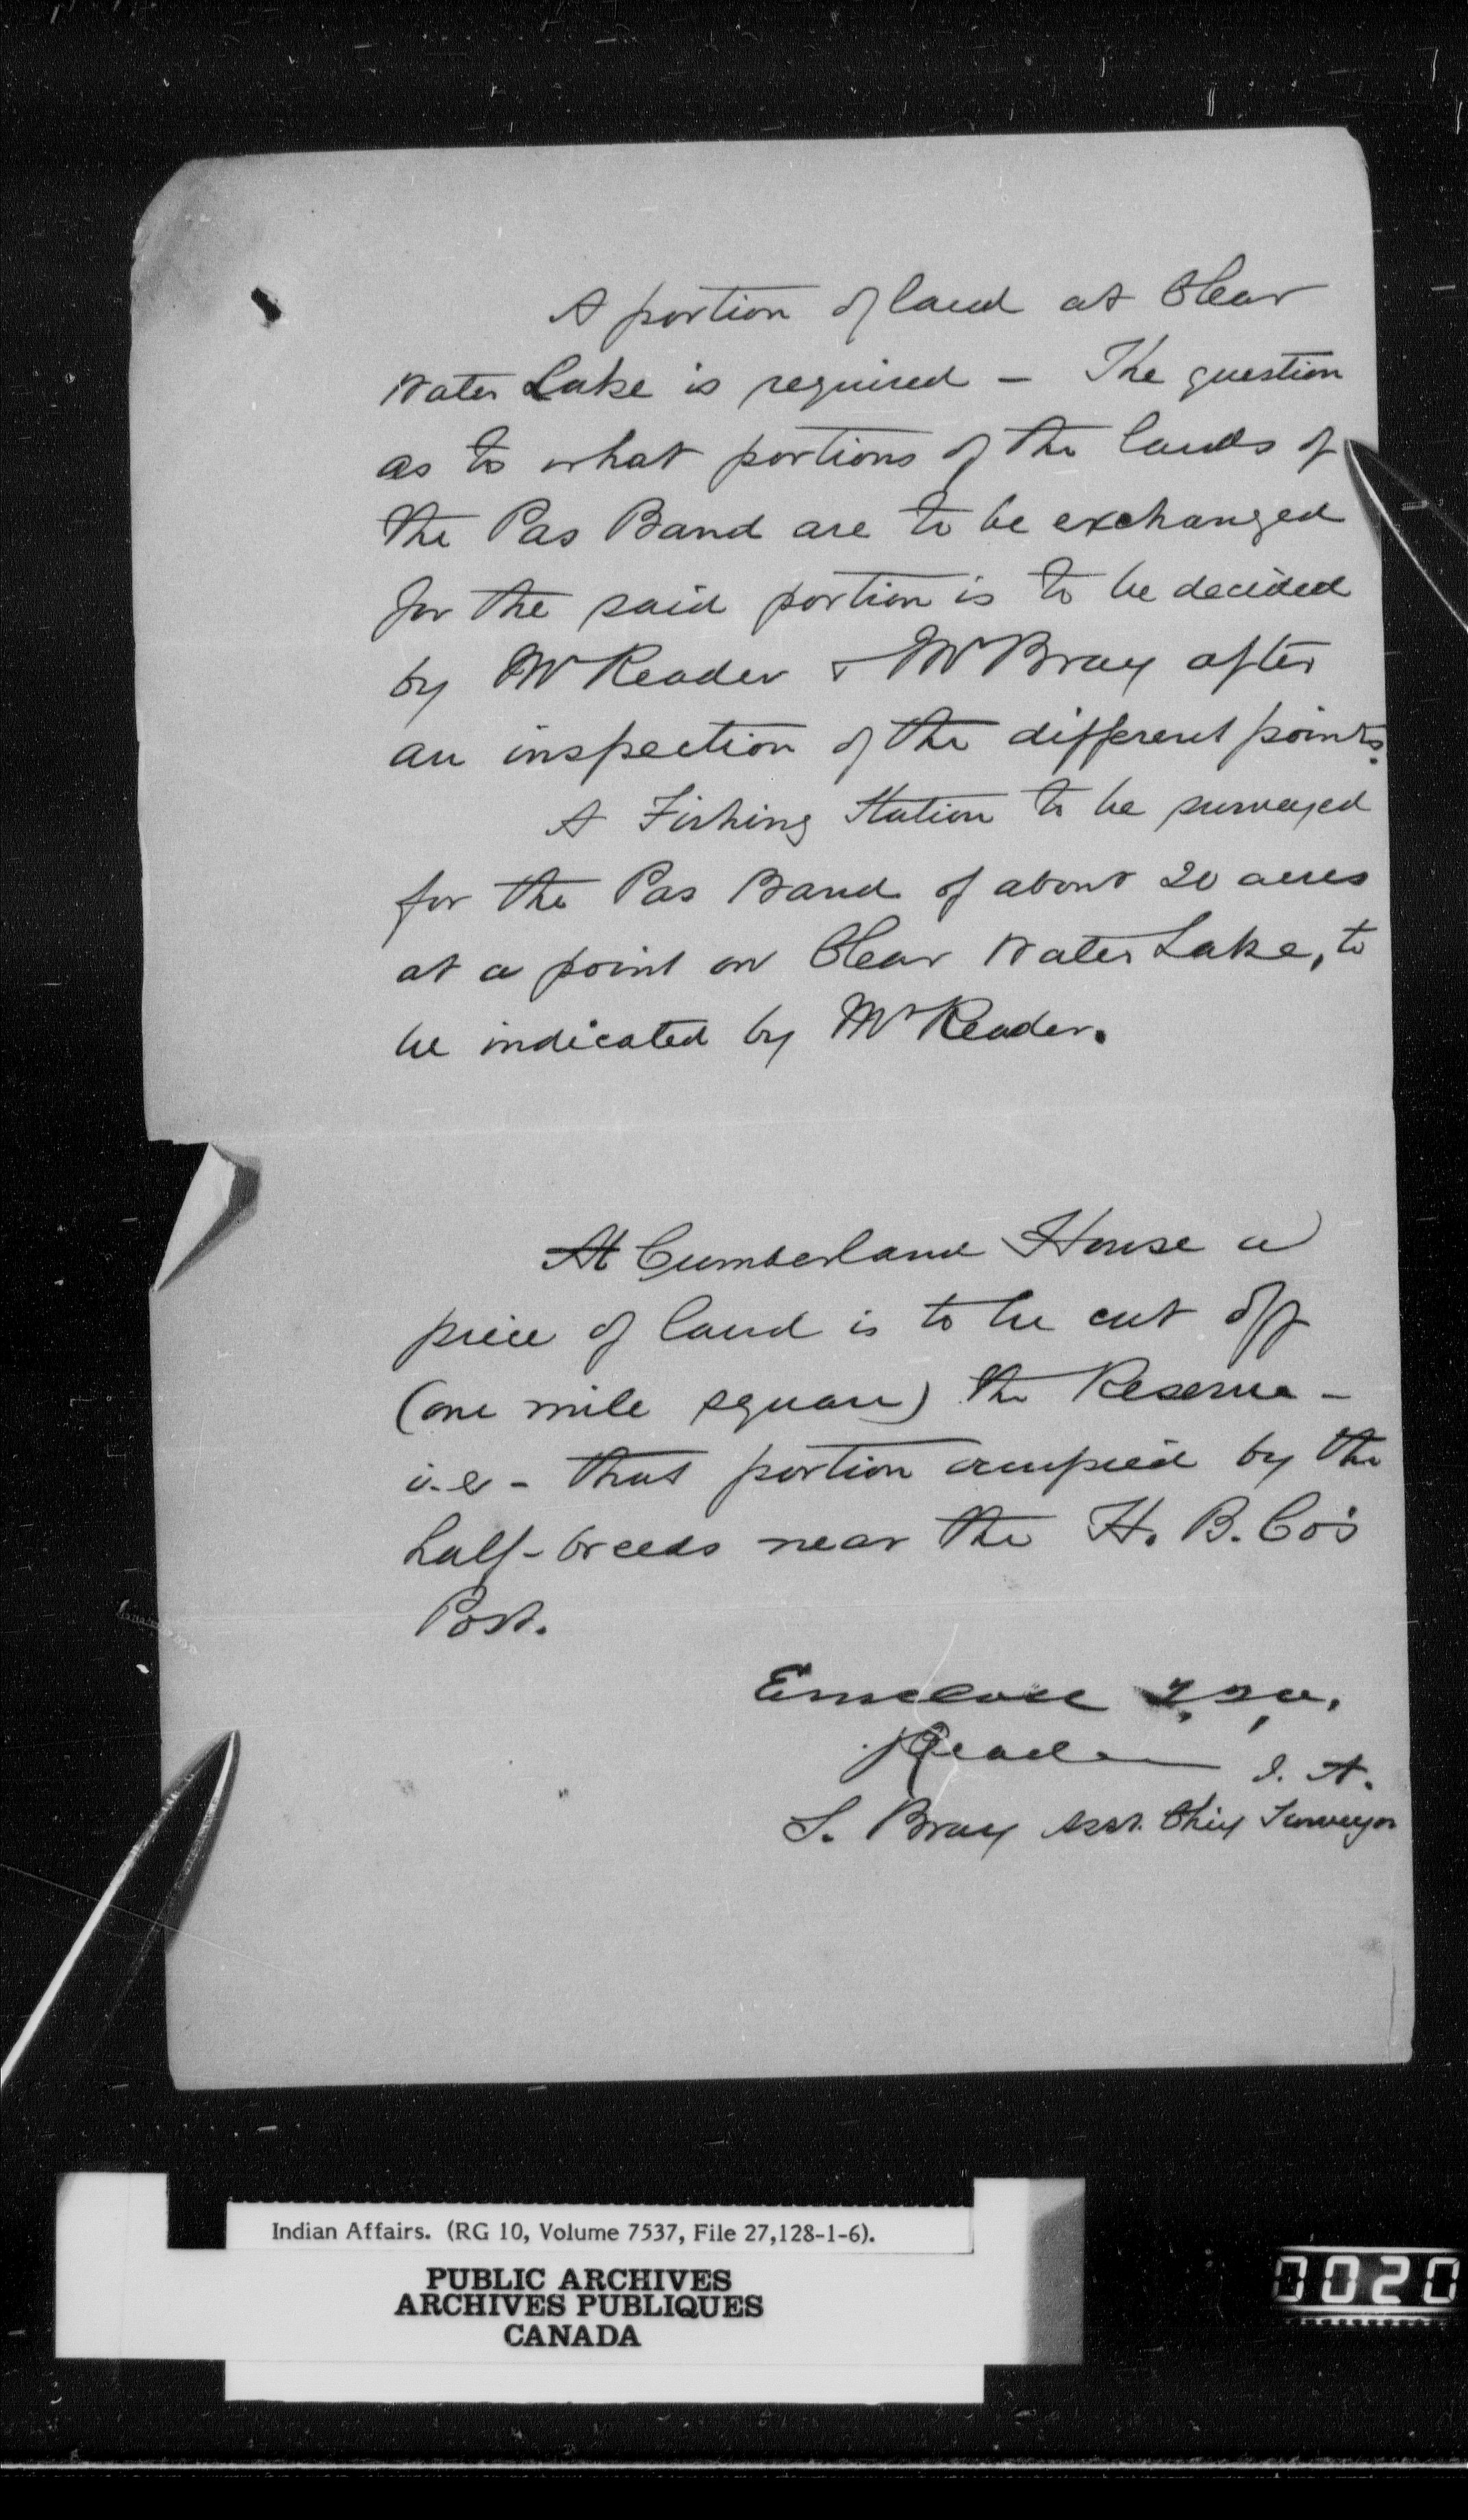 A portion of land at Clear
Water Lake is required – The question
as to what portions of the lands of
the Pas Band are to be exchanged
for the said portion is to be decided
by Mr Reader & Mr Bray after
an inspection of the different points.
A Fishing Station to be surveyed
for the Pas Band of about 20 acres
at a point on Clear Water Lake, to
be indicated by Mr Reader.
At Cumberland House a
piece of land is to be cut off
(one mile square) the Reserve –
i.e – that portion occupied by the
half-breeds near the H. B. Co's
Post.
Reader I. A.
S. Bray Asst. Chief Surveyor
Indian Affairs. (RG 10, Volume 7537, File 27,128-1-6).
PUBLIC ARCHIVES
ARCHIVES PUBLIQUES
CANADA
0020